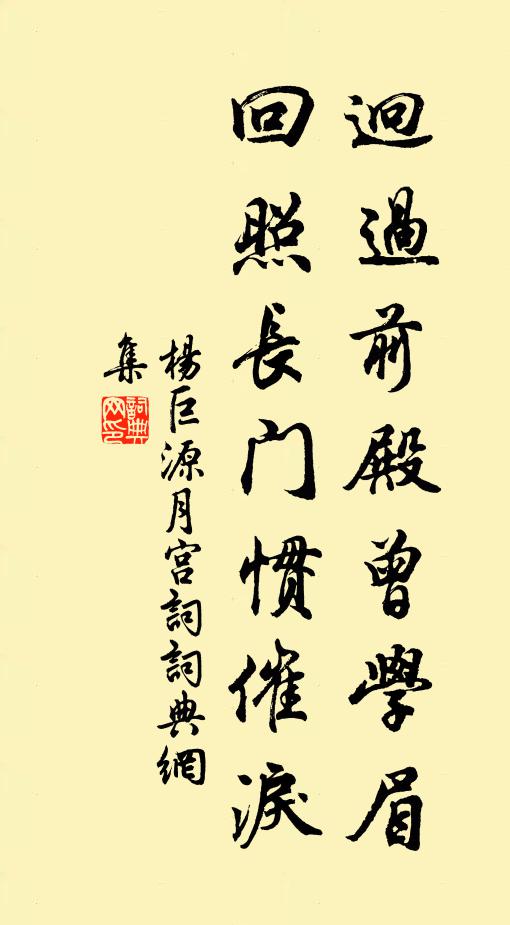 迥過前殿曾學眉
回照長门慣催淚
楊巨源月宫詞詞典網
集
詞典网印